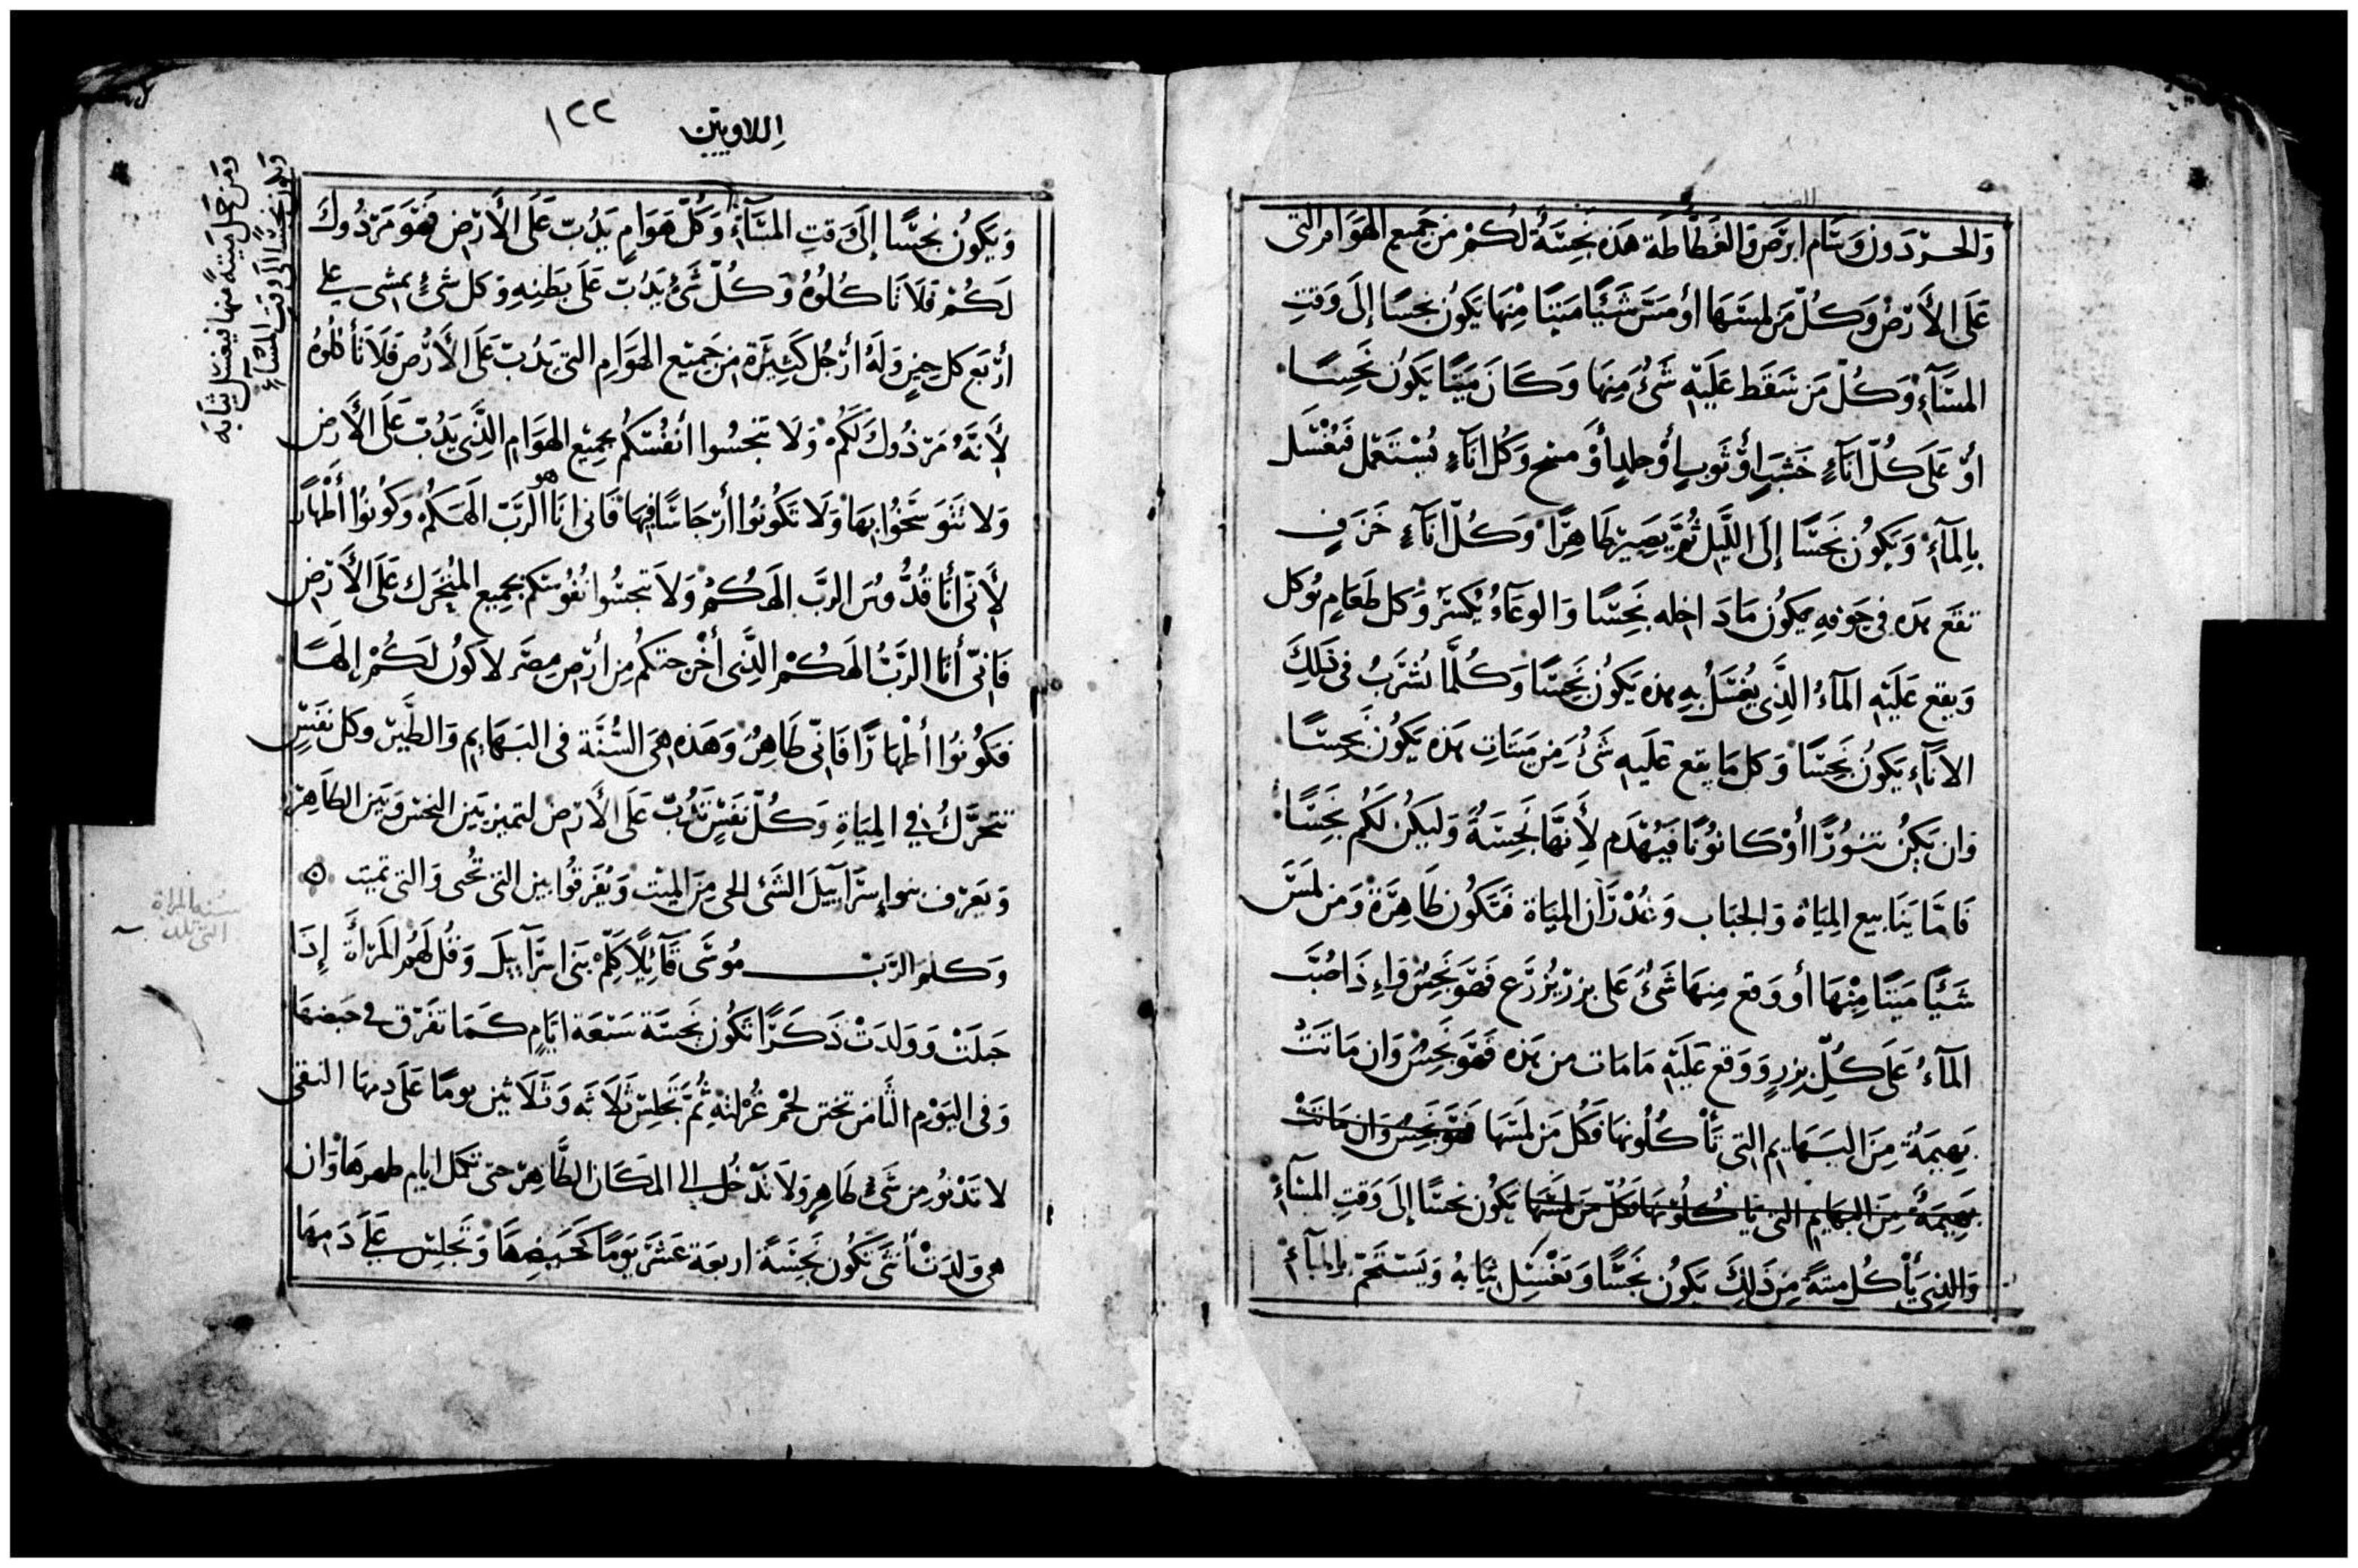 وَالحردون وَسَام ابرَص وَالغطاطة هَذه نَجِسَةٌ لكُمْ من جَمِيع الهَوَام التى
عَلَى الأَرْض وَكُلّ مَن لمسَهَا أو مَسَّ شَيْئًا مَيتًا مِنْهَا يَكُون نجسًا إلَى وَقتِ
المسَآءِ وَكُلّ مَن سَقَط عَلَيْهِ شَىْءٌ مِنهَا وَكَانَ مَيتًا يَكُون نَجِسًا
أوْ عَلَى كُلّ انَآءٍ خَشَبٍ أوْ ثَوبٍ أوْ جلدٍ أوْ مسْحٍ وَكُل انَآءٍ يُسْتَعْمل فَيُغْسَل
بِالمَآءِ وَيَكوُن نَجَسًا إلَى اللَّيل ثُمَّ يَصِير طَاهِرًا وَكُلّ انَآءٍ خَزَفٍ
تقَع هَذه فى جَوفهِ يَكُون مَا دَاخله نَجِسًا وَالوعَآءُ يُكْسَر وَكل طَعَامٍ يُوكل
وَيقع عَلَيْهِ المَآءُ الذِّى يُغْسَلُ بِهِ هذه يَكُون نَجِسًا وَكُلَّمَا يُشرَبُ فى ذَلِكَ
الانَآءِ يَكوُن نَجِسًا وَكل مَا يقع عَلَيهِ شَىْءٌ مِن مَيتَات هَذه يَكُون نَجِسًا
وَان يَكُن تنوُرًا أوْ كَانوُنًا فَيُهْدَم لأَنهَّا نَجِسَةٌ وَليَكُن لَكُم نَجِسًا
فَامَّا يَنَابيع المِيَاة وَالجبَاب وَغُدْرَان المِيَاة فَتَكُون طَاهِرَةً وَمَن لمَسَ
شَيْئًا مَيتًا مِنْهَا أو وَقع مِنهَا شَىْءٌ عَلى بزرٍ يُزرَع فَهوَ نَجِسٌ وَإذَا صُبَّ
المَآءُ عَلَى كُلّ بزرٍ وَوَقع عَلَيْهِ مَا مَات من هَذه فَهوَ نَجِسٌ وَان مَاتَتْ
بَهِيمَةٌ مِنَ البَهَايم التى تَأكُلُونهَا فَكُل مَن لمسَهَا فَهوَ نَجِسٌ وَان مَاتَتْ
بَهِيمَةٌ مِنَ البَهَايم التى تَاكُلوُنهَا فَكُلّ مَن لمَسَهَا يَكُون نجسًا إلَى وَقتِ المسَآءِ
وَالذِى يَأْكُل ميتةً مِن ذَلكَ يَكوُن نَجَسًا وَيَغْسِل ثيَابهُ وَيَستَحمّ بالمآءِ
اللاويين ١٢٢
وَيَكوُن نَجِسًا إلى وَقتِ المسَآءِ وَكُلّ هَوَامٍ يَدُبّ عَلَى الأَرْض فهوَ مَرْذُوك
لَكُمْ فَلَا تَاكُلُوهُ وَكُلّ شَىْءٍ يَدُبّ عَلَى بَطنِهِ وَكل شَىْءٍ يمشى على
أرْبَع كل حِينٍ وَلَهُ أرْجُل كَثيرَة من جَمِيْع الهوَامِ التى يَدُبّ عَلَى الأَرْض فَلَا تَأْكُلوُهُ
لأَنهَّ مَرْذُوكَ لَكُمْ وَلَا تنجسُوا أنفُسَكُم بجميْع الهوَامِ الذِّى يَدُبّ عَلَى الأَرْض
وَلا تَتَوَسَّخُوا بهَا وَلَا تَكُونوُا أرْجَاسًا فيهَا فَانى انَا هو الرَّبّ الَهكُمْ وَكُونوُا أَطْهَارً
لأَنّى أنَا قُدُّوسٌ الرَّبّ الَهكُمْ وَلَا تنجسُوا نُفُوسَكم بجَمِيع المُتحَرِك عَلَى الأَرْض
فَانىّ أنَا الرَّبُّ الَهكُمْ الذِّى أخْرجتكُم مِن أرْض مِصَر لاكون لَكُمْ إلهًا
فكُونوُا أطْهَارًا فَانىّ طَاهِرٌ وَهَذه هىَ السُّنَّة فى البَهَايم وَالطَّيْر وَكل نفَسٍ
تتحَرَّكُ فى المِيَاةِ وَكُلّ نفَسٍ تَدُبّ عَلَى الأَرْض لتميز بَين النجَس وَبَين الطَاهِر
وَيَعَرْف بنو إسرَآييلَ الشَئ الحى مِنَ الميت وَيُفَرقُوا بين التى تُحْى وَالتى تميت ۞
وَكلم الرَّبّ مُوسَى قَآئِلًا كَلِّمْ بَنى اسرَآييلَ وَقُل لَهُم المَرْأَة إذَا
حبَلَتْ وَوَلدَتْ ذَكَرًا تَكُون نَجسَة سَبْعَة ايَّامٍ كَمَا تفرق فى حَيضهَا
وَفى اليَوْمِ الثَّامن تختن لحْم غُرْلتهِ ثُمَّ تَجْلِس ثَلَاثَة وَثَلَاثين يومًا عَلَى دمهَا النقى
لا تدْنو مِن شَىْءٍ طَاهِرٍ وَلَا تدْخُل إلى المكَان الطَّاهِر حتى تكمل ايام طهرهَا وَان
هى وَلدَتْ أنثى تَكُون نَجِسَةً اربعَة عَشَر يَوْمًا كَحَيضِهَا وَتَجلِس على دَمهَا
وَمَن حَمل مَيتةً منها فيغسل ثيَابه
وَيَكون نجسًا الى وَقت المسَآءِ
سنة المراة
التى تلد